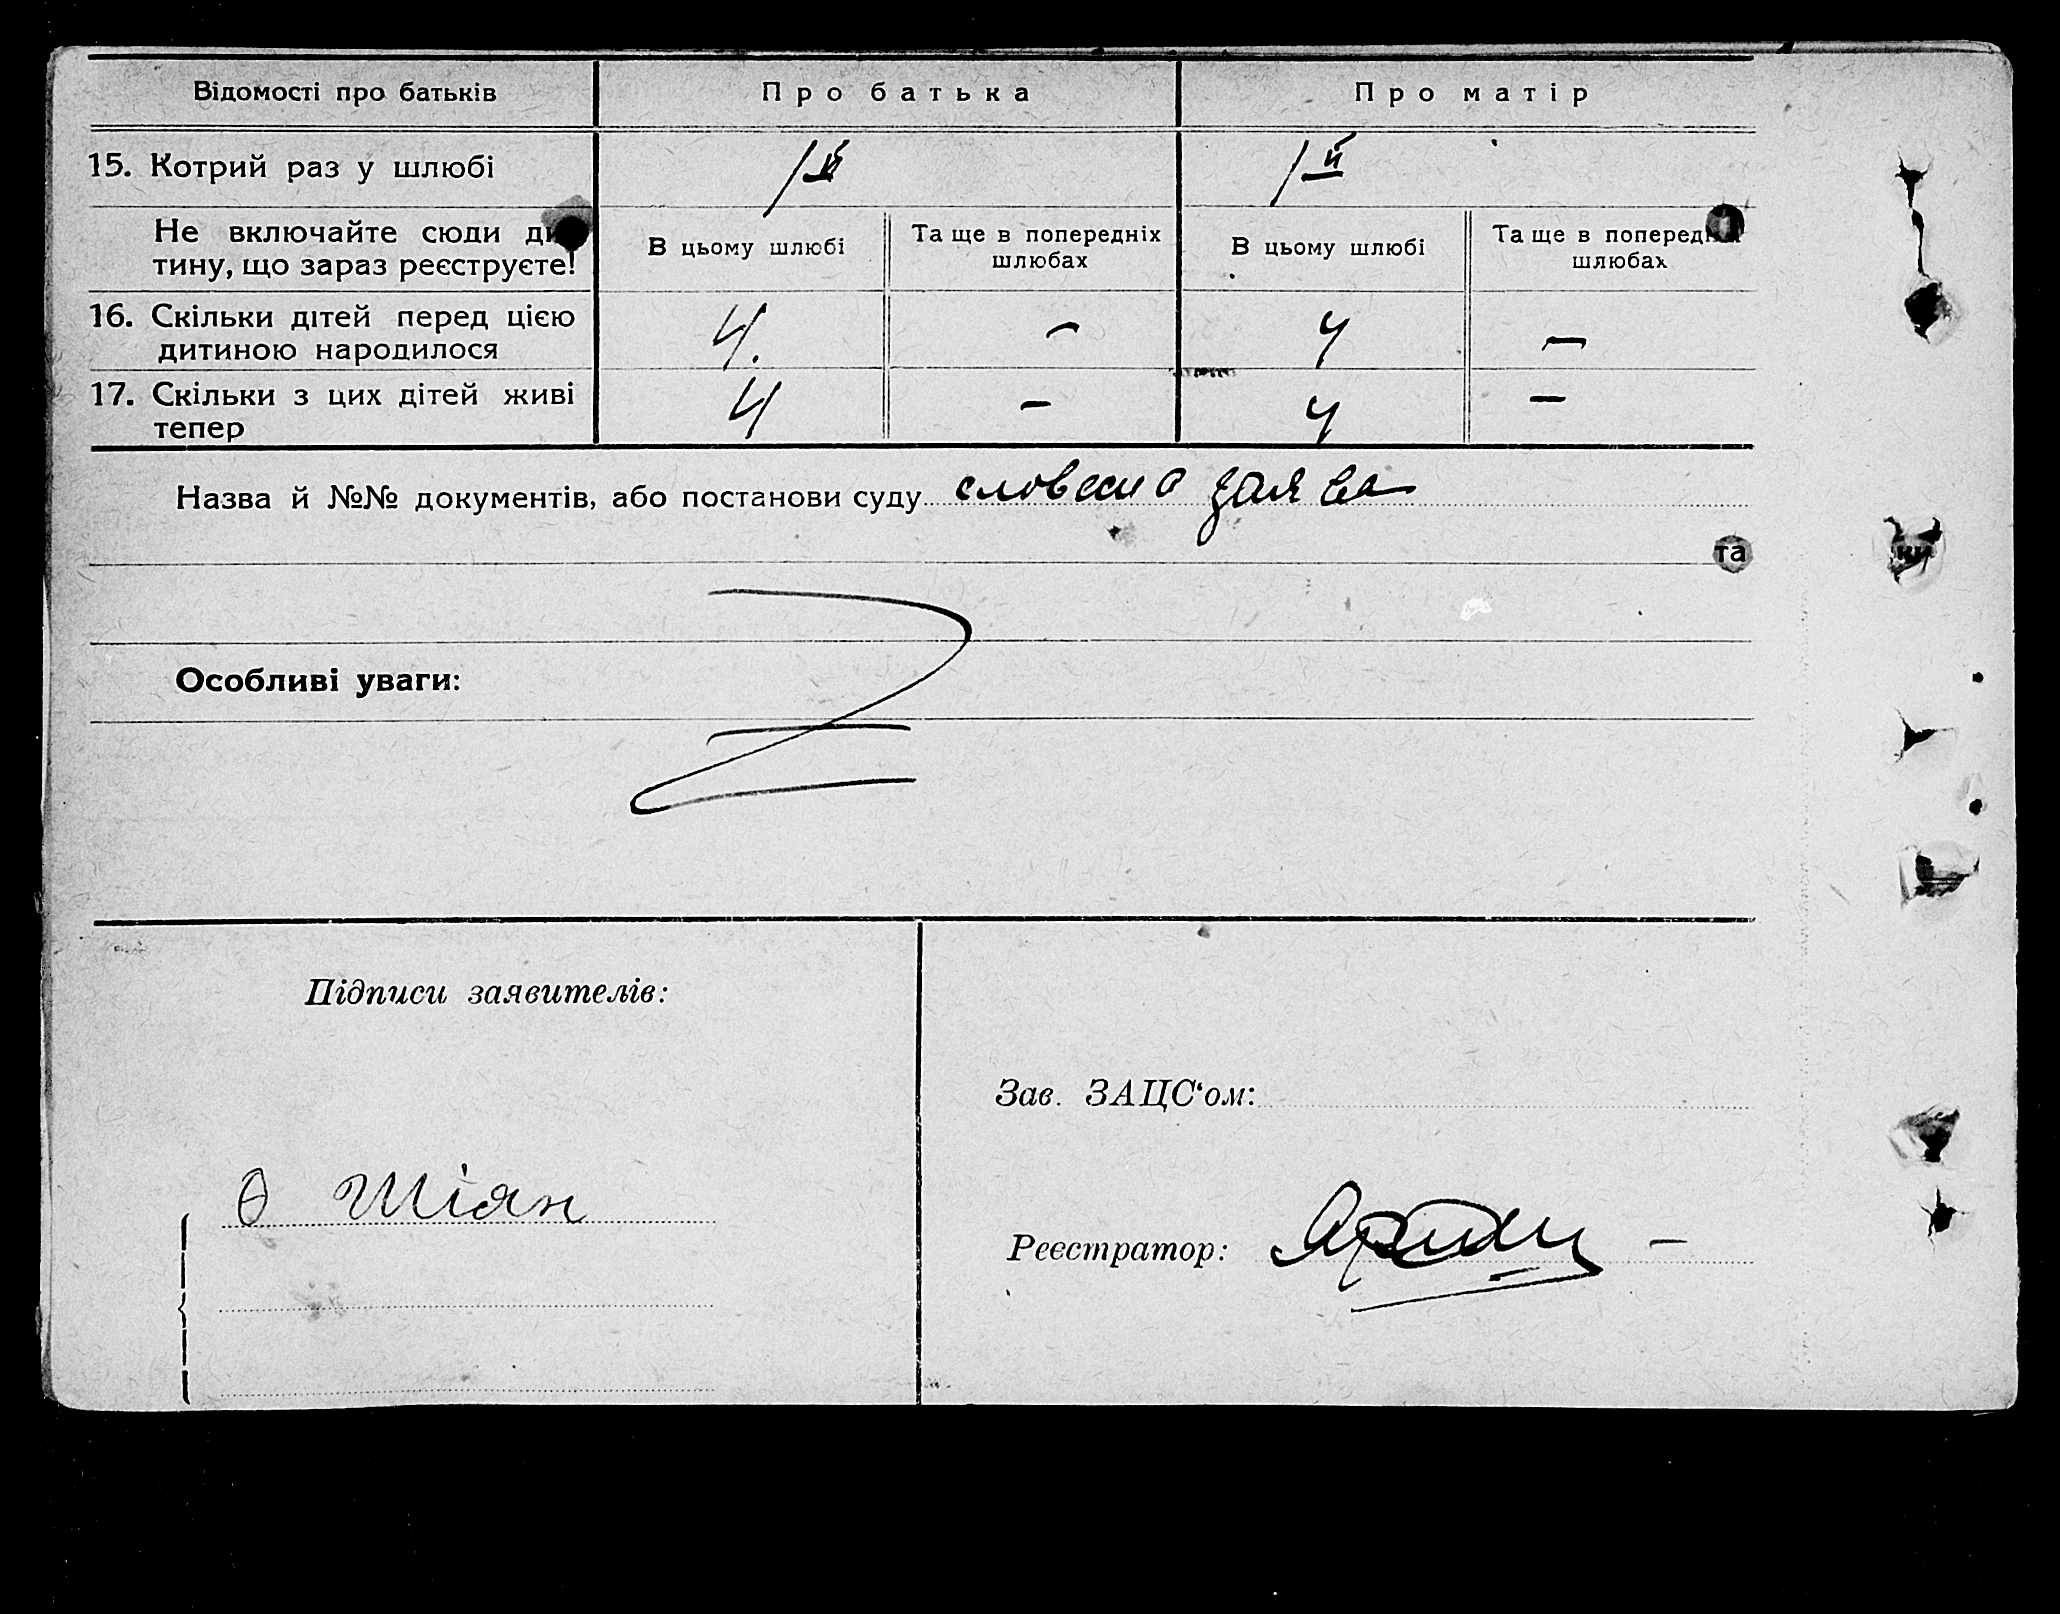 Відомості про батьків Про батька Про матір
15. Котрий раз у шлюбі 1й 1й
Не включайте сюди ди-
тину, що зараз реєструєте!
В цьому шлюбі Та ще в попередніх шлюбах В цьому шлюбі Та ще в попередніх шлюбах
16. Скільки дітей перед цією
дитиною народилося 4. – 4 –
17. Скільки з цих дітей живі
тепер 4 – 4 –
Назва й №№ документів, або постанови суду словесна заява
та
ки
Особливі уваги:
Підписи заявителів:
Зав. ЗАЦС'ом:
Шіян
Реєстратор: